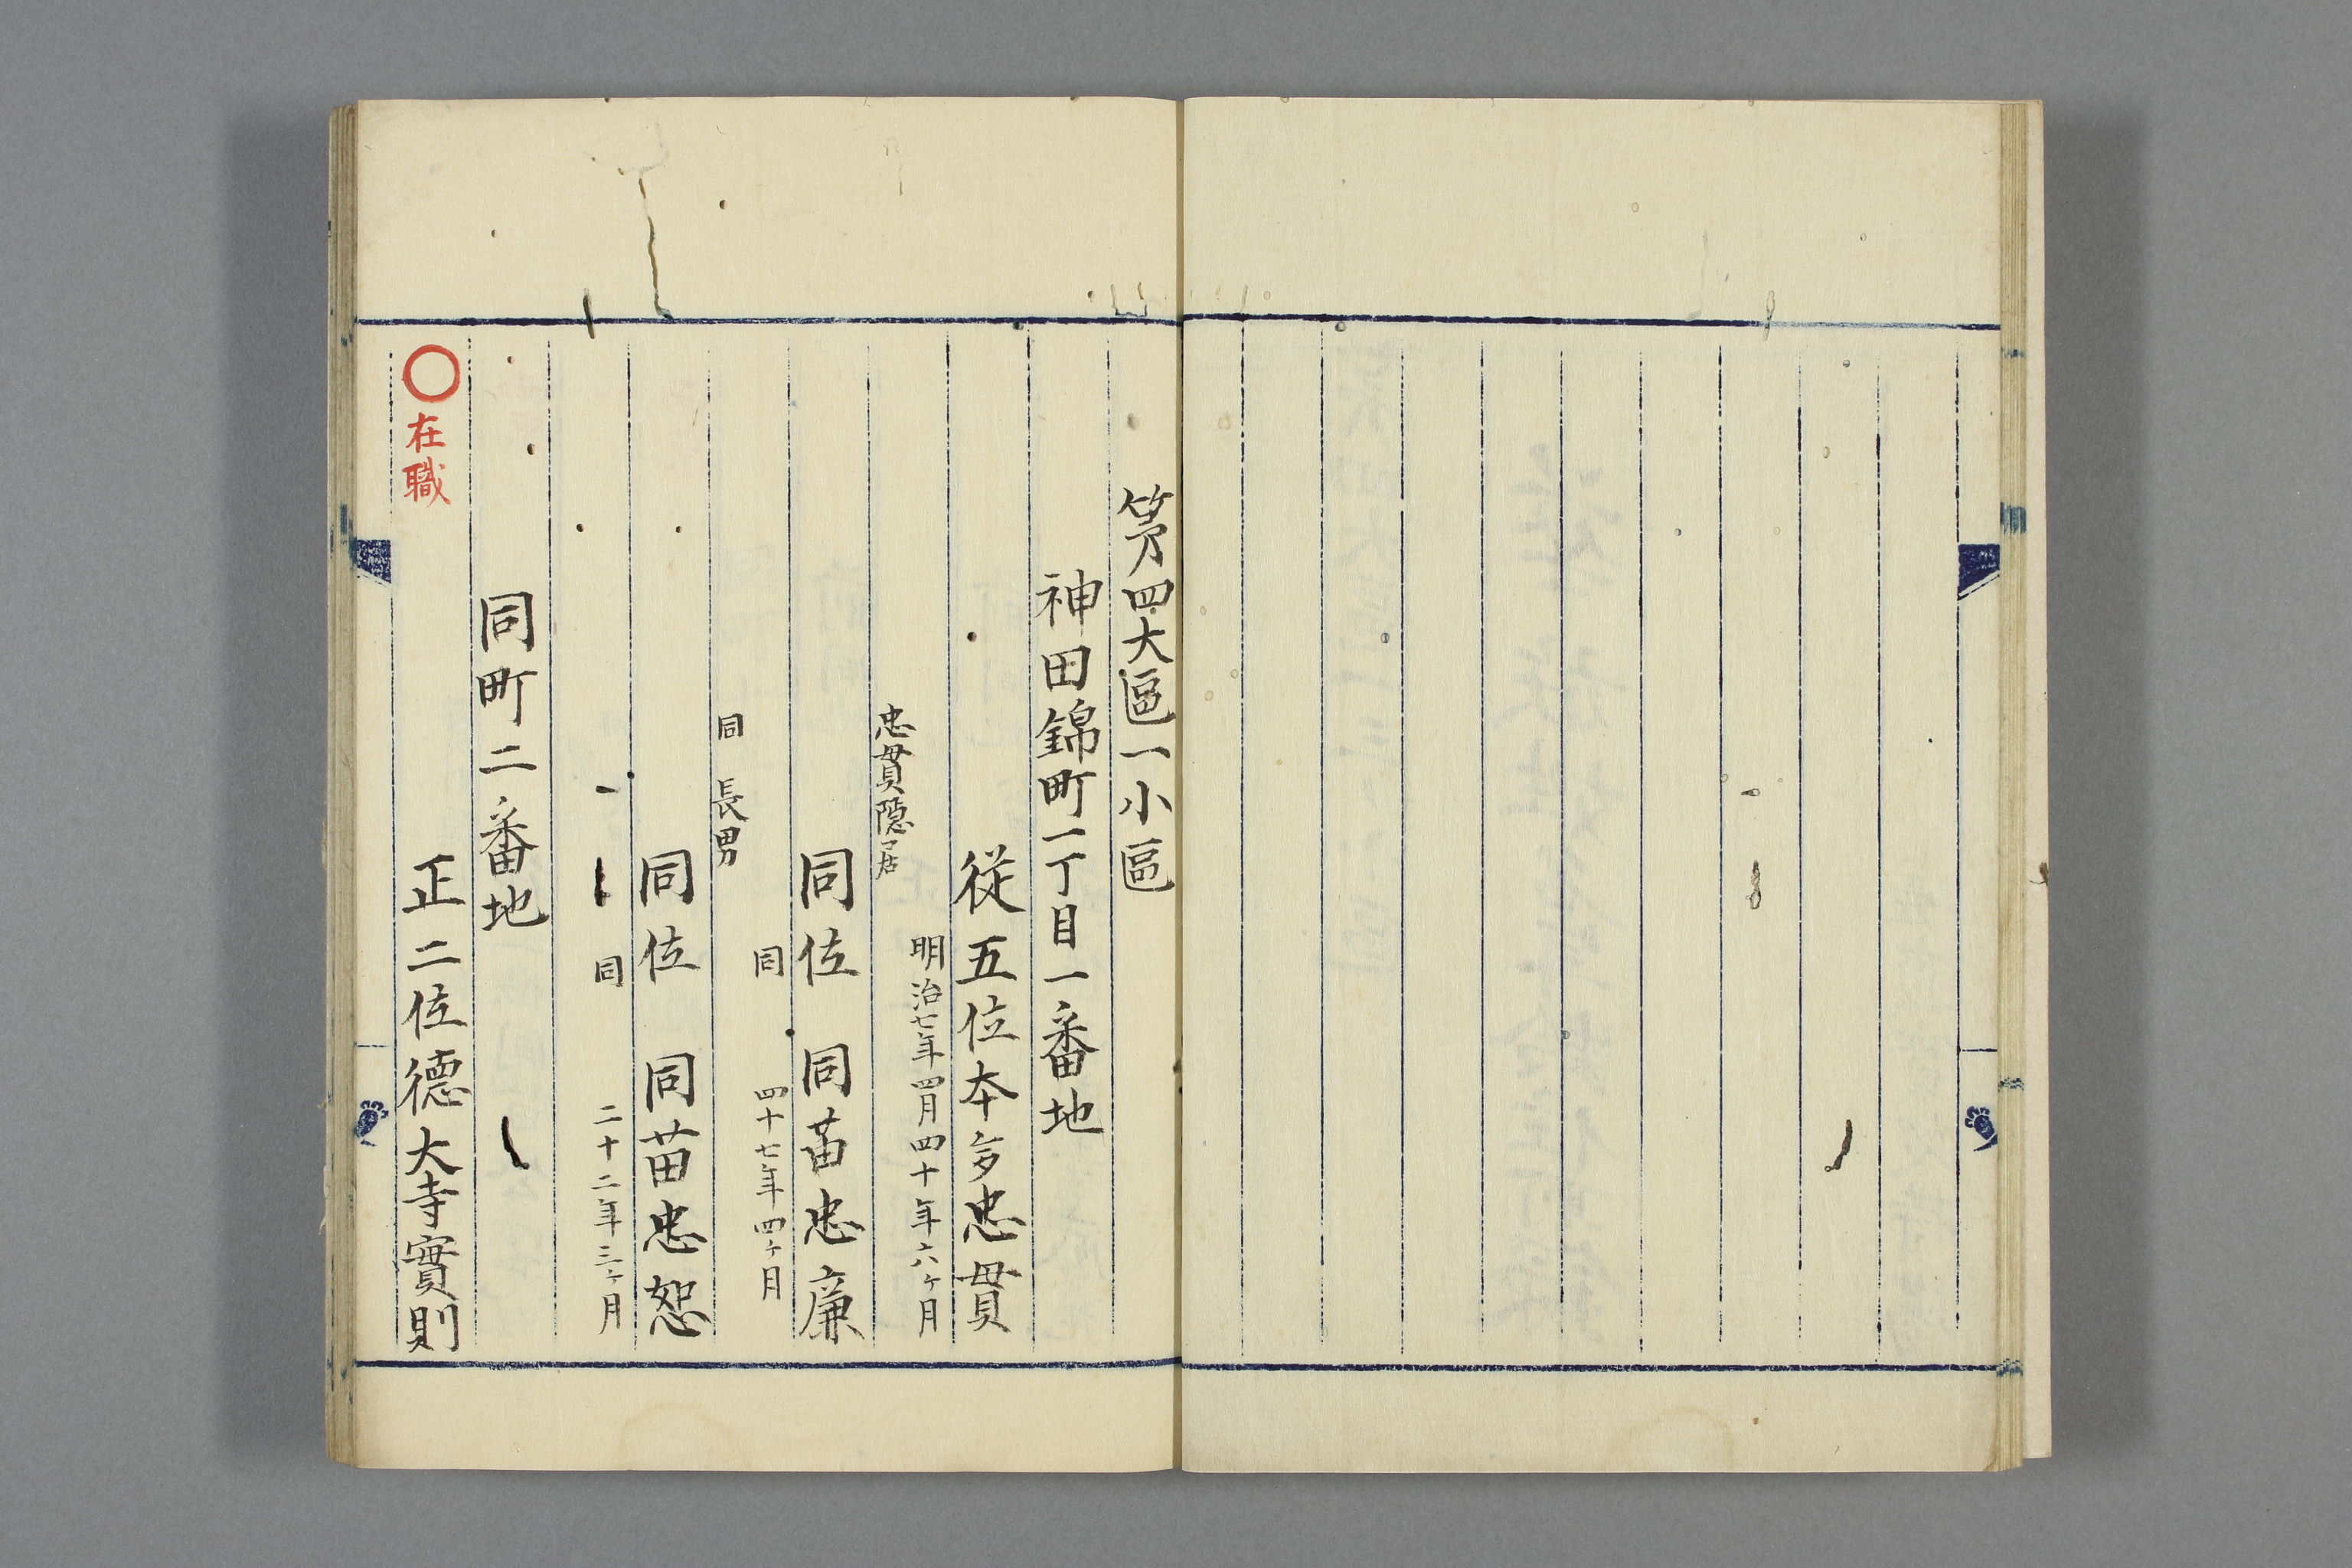 第四大區一小區
神田錦町一丁目一番地
從五位本多忠貫
明治七年四月四十年六ヶ月
忠貫隠居
同位 同苗忠廉
同 四十七年四ヶ月
同 長男
同位 同苗忠恕
同 二十二年三ヶ月
同町二番地
○在職
正二位德大寺實則